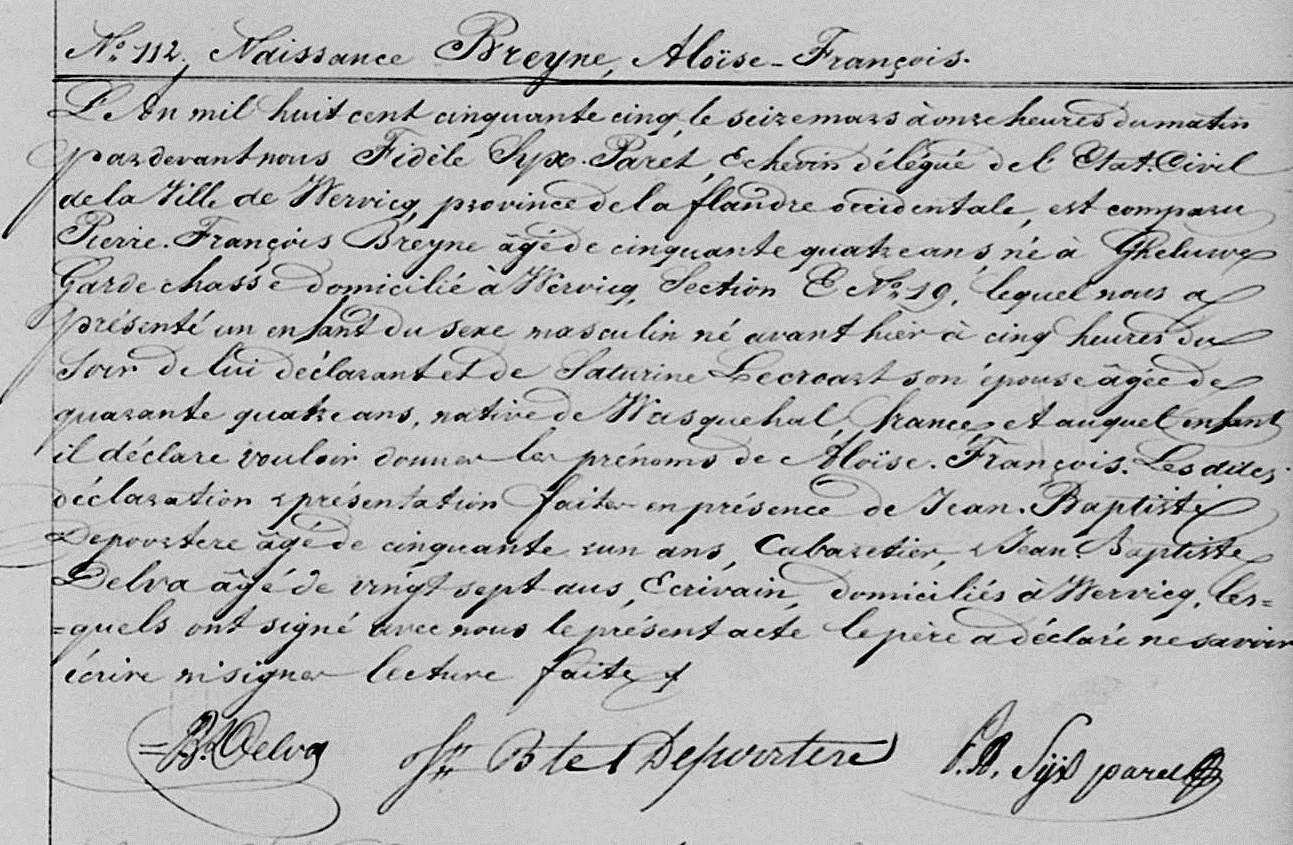 N.o 112, Naissance Breyne, Aloïse-François.
L'An mil huit cent cinquante cinq, le seize mars à onze heures du matin
pardevant nous Fidèle Syx-Paret, Echevin délégué de l'Etat-Civil
de la Ville de Wervicq, province de la flandre occidentale, est comparu
Pierre-François Breyne âgé de cinquante quatre ans, né à Gheluwe
Garde chasse domicilié à Wervicq, Section E No. 19, lequel nous a
présenté un enfant du sexe masculin né avant hier à cinq heures du
Soir de lui déclarant et de Saturine Lecroart son épouse âgée de
quarante quatre ans, native de Wasquehal, france, et auquel enfant
il déclare vouloir donner les prénoms de Aloïse-François. Les dites
déclaration & présentation faites en présence de Jean-Baptiste
Depoortere âgé de cinquante & un ans, Cabaretier, & Jean-Baptiste
Delva âgé de vingt sept ans, Ecrivain, domiciliés à Wervicq, les=
=quels ont signé avec nous le présent acte le père a déclaré ne savoir
écrire ni signer lecture faite
=B. Delva Jn Bte Depoortere F.A. Syx paret